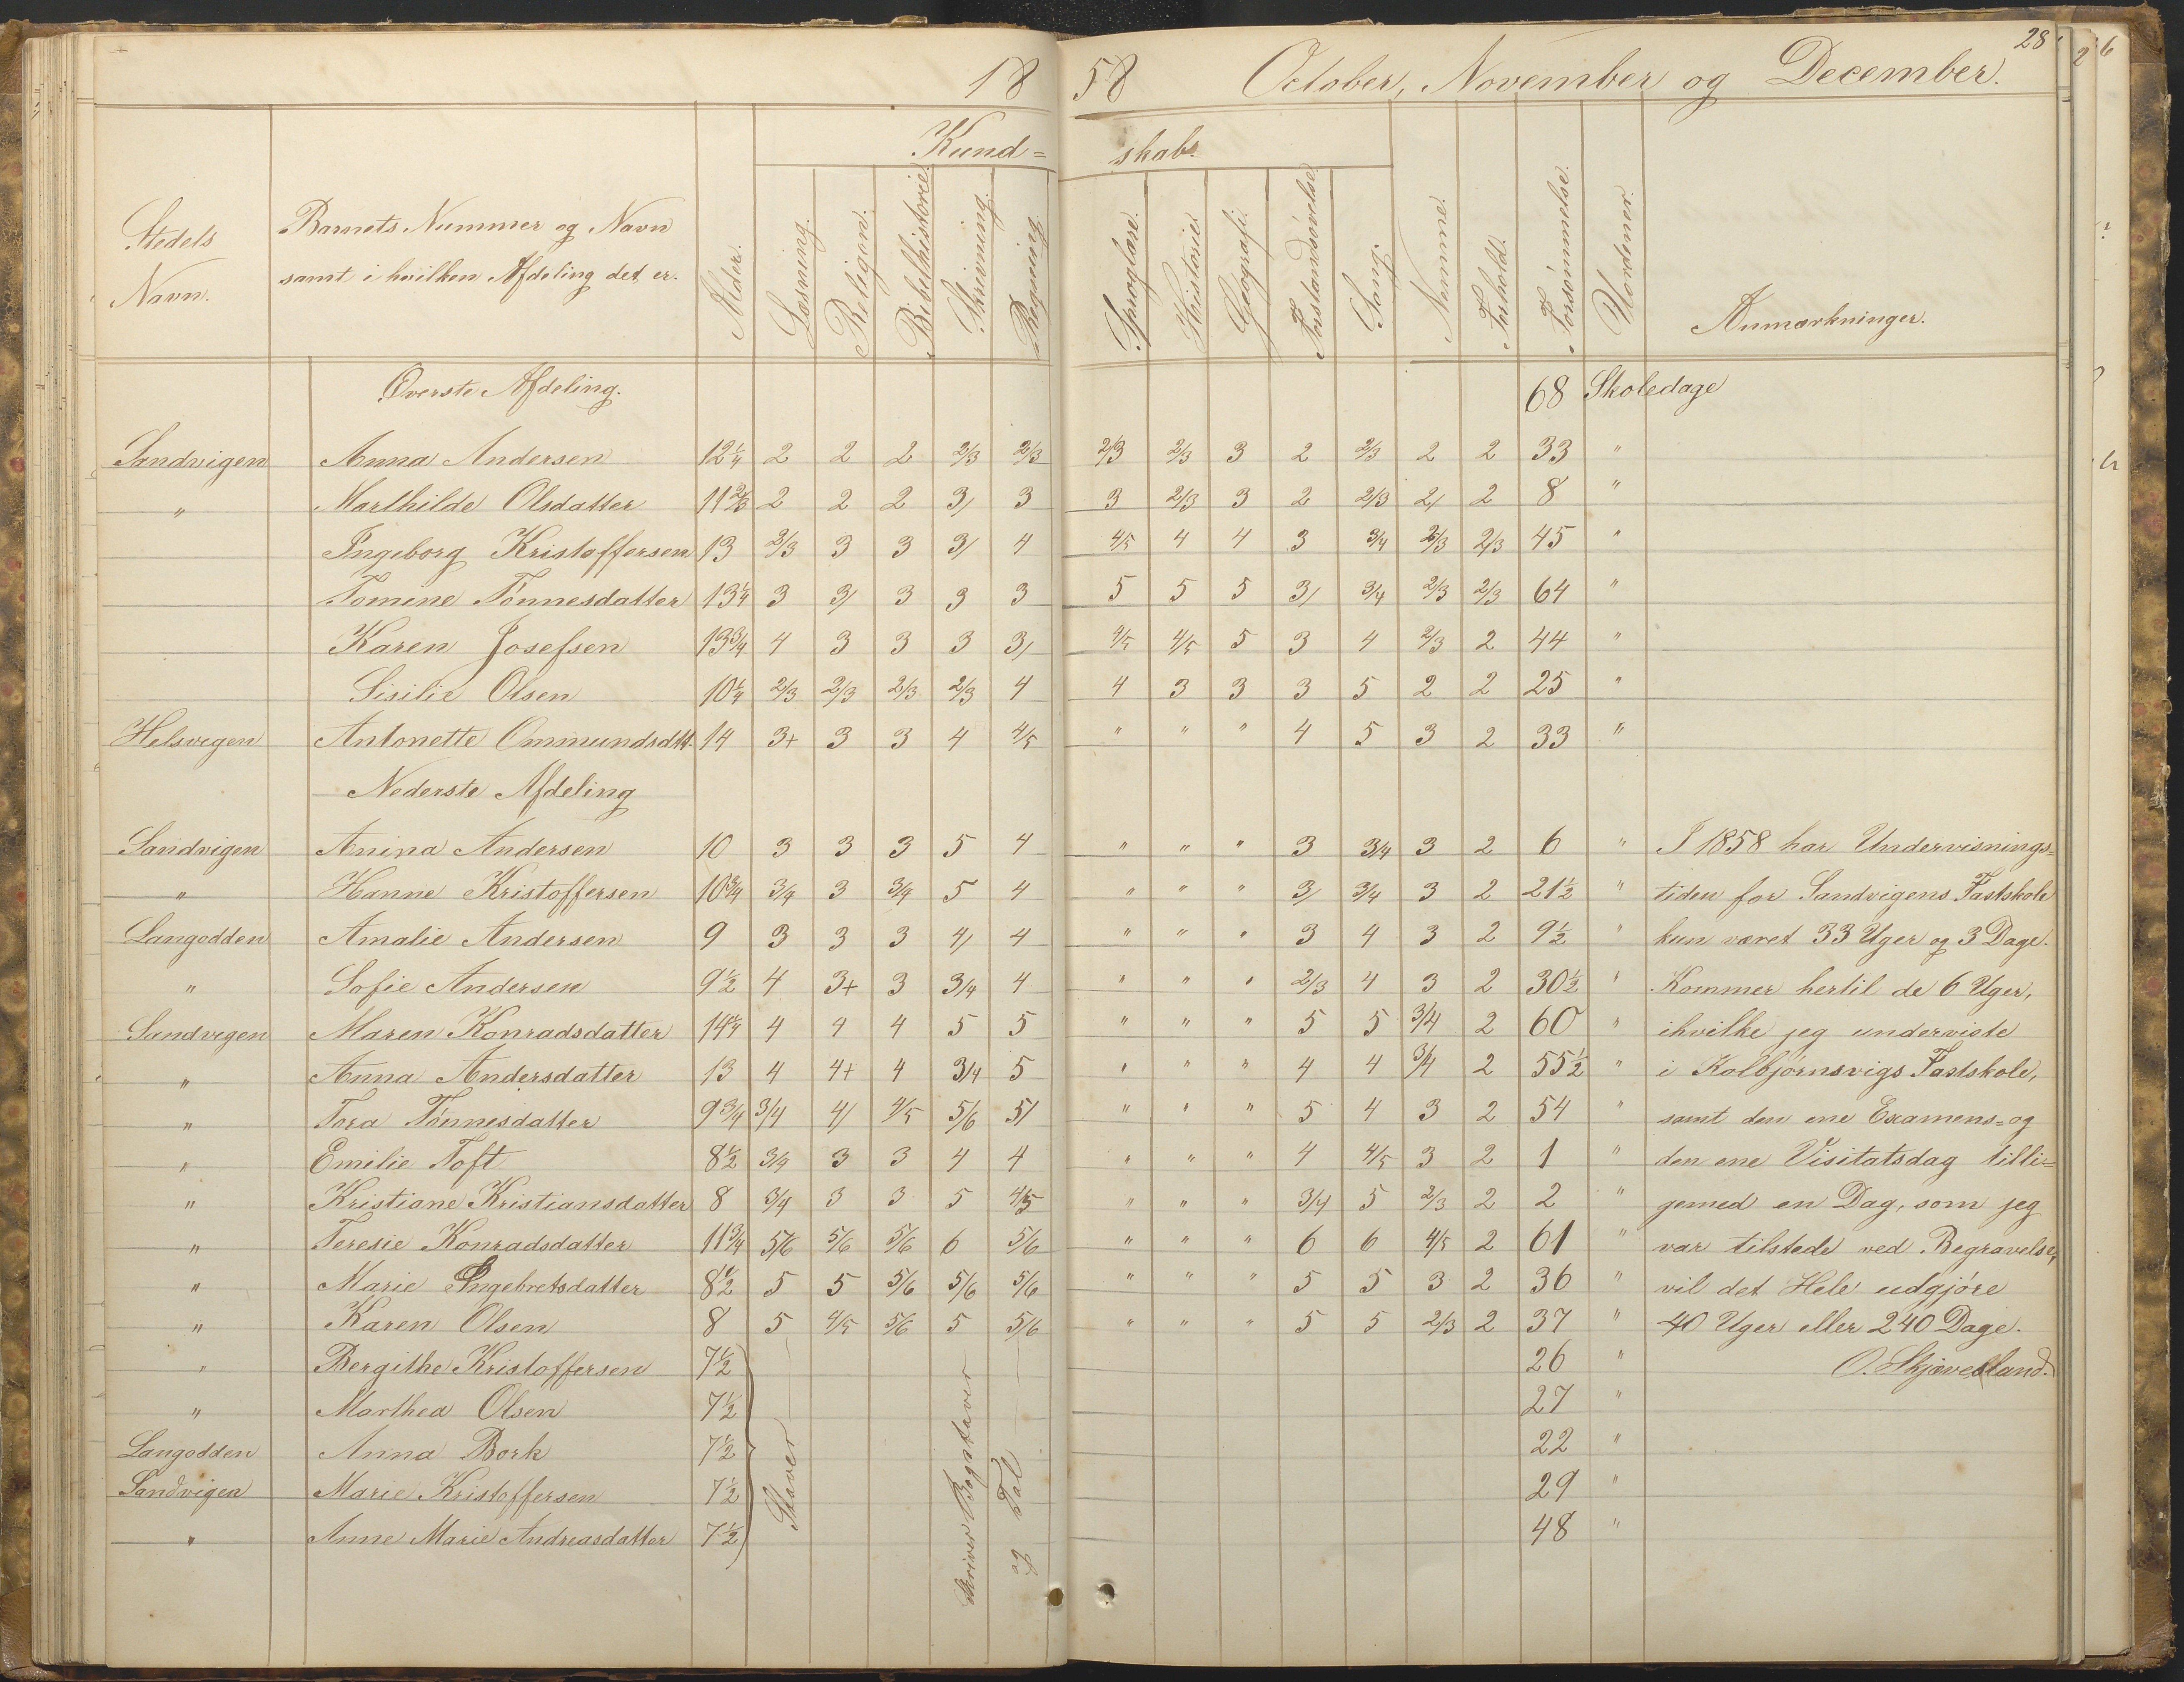 1858 October, November og December. 28
Kund=skabs
Stedets Navn. | Barnets Nummer og Navn samt i hvilken Afdeling det er. | Alder. | Læsning. | Religion. | Bibelhistorie. | Skrivning. | Regning. | Sproglære. | Historie. | Geografi. | Forstandsøvelse. | Sang. | Nemme. | Forhold. | Forsømmelse. | Uordener. | Anmærkninger.
Øverste Afdeling. 68 Skoledage
Sandvigen Anna Andersen 12¼ 2 2 2 2/3 2/3 2/3 2/3 3 2 2/3 2 2 33 "
" Marthilde Olsdatter 11 2/3 2 2 2 3/ 3 3 2/3 3 2 2/3 2/ 2 8 "
Ingeborg Kristoffersen 13 2/3 3 3 3/ 4 4/5 4 4 3 3/4 2/3 2/3 45 "
Tomine Tönnesdatter 13¼ 3 3/ 3 3 3 5 5 5 3/ 3/4 2/3 2/3 64 "
Karen Josefsen 13¾ 4 3 3 3 3/ 4/5 4/5 5 3 4 2/3 2 44 "
Sisilie Olsen 10¼ 2/3 2/3 2/3 2/3 4 4 3 3 3 5 2 2 25 "
Helsvigen Antonette Ommundsdtt. 14 3+ 3 3 4 4/5 " " " 4 5 3 2 33 "
Nederste Afdeling
Sandvigen Anina Andersen 10 3 3 3 5 4 " " " 3 3/4 3 2 6 " I 1858 har Undervisnings=
" Hanne Kristoffersen 10¾ 3/4 3 3/4 5 4 " " " 3/ 3/4 3 2 21½ " tiden for Sandvigens Fastskole
Langodden Amalie Andersen 9 3 3 3 4/ 4 " " " 3 4 3 2 9½ " kun været 33 Uger og 3 Dage.
" Sofie Andersen 9½ 4 3+ 3 3/4 4 " " " 2/3 4 3 2 30½ " Kommer hertil de 6 Uger,
Sandvigen Maren Konradsdatter 14¼ 4 4 4 5 5 " " " 5 5 3/4 2 60 " ihvilke jeg underviste
" Anna Andersdatter 13 4 4+ 4 3/4 5 " " " 4 4 3/4 2 55½ " i Kolbjørnsvigs Fastskole,
" Tora Tönnesdatter 9¾ 3/4 4/ 4/5 5/6 5/ " " " 5 4 3 2 54 " samt den ene Examens=og
" Emilie Toft 8½ 3/4 3 3 4 4 " " " 4 4/5 3 2 1 " den ene Visitatsdag tilli=
" Kristiane Kristiansdatter 8 3/4 3 3 5 4/5 " " " 3/4 5 2/3 2 2 " gemed en Dag, som jeg
" Teresie Konradsdatter 11¾ 5/6 5/6 5/6 6 5/6 " " " 6 6 4/5 2 61 " var tilstede ved Begravelse,
" Marie Ingebretsdatter 8½ 5 5 5/6 5/6 5/6 " " " 5 5 3 2 36 " vil det Hele udgjøre
" Karen Olsen 8 5 4/5 5/6 5 5/6 " " " 5 5 2/3 2 37 " 40 Uger eller 240 Dage.
" Bergithe Kristoffersen 7½ 26 " O. Skjæveland.
" Marthea Olsen 7½ 27 "
Langodden Anna Bork 7½ 22 "
Sandvigen Marie Kristoffersen 7½ 29 "
" Anne Marie Andreasdatter 7½ 48 "
Staver
Skriver Bogstaver
og Tal